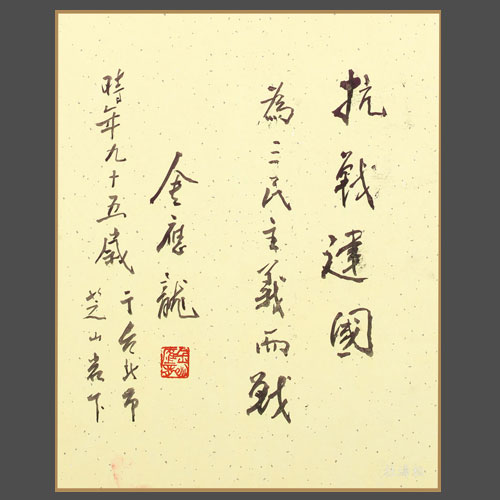 抗戰建國
為三民主義而戰
金應龍
時年九十五歲
于台北市
芝山岩下